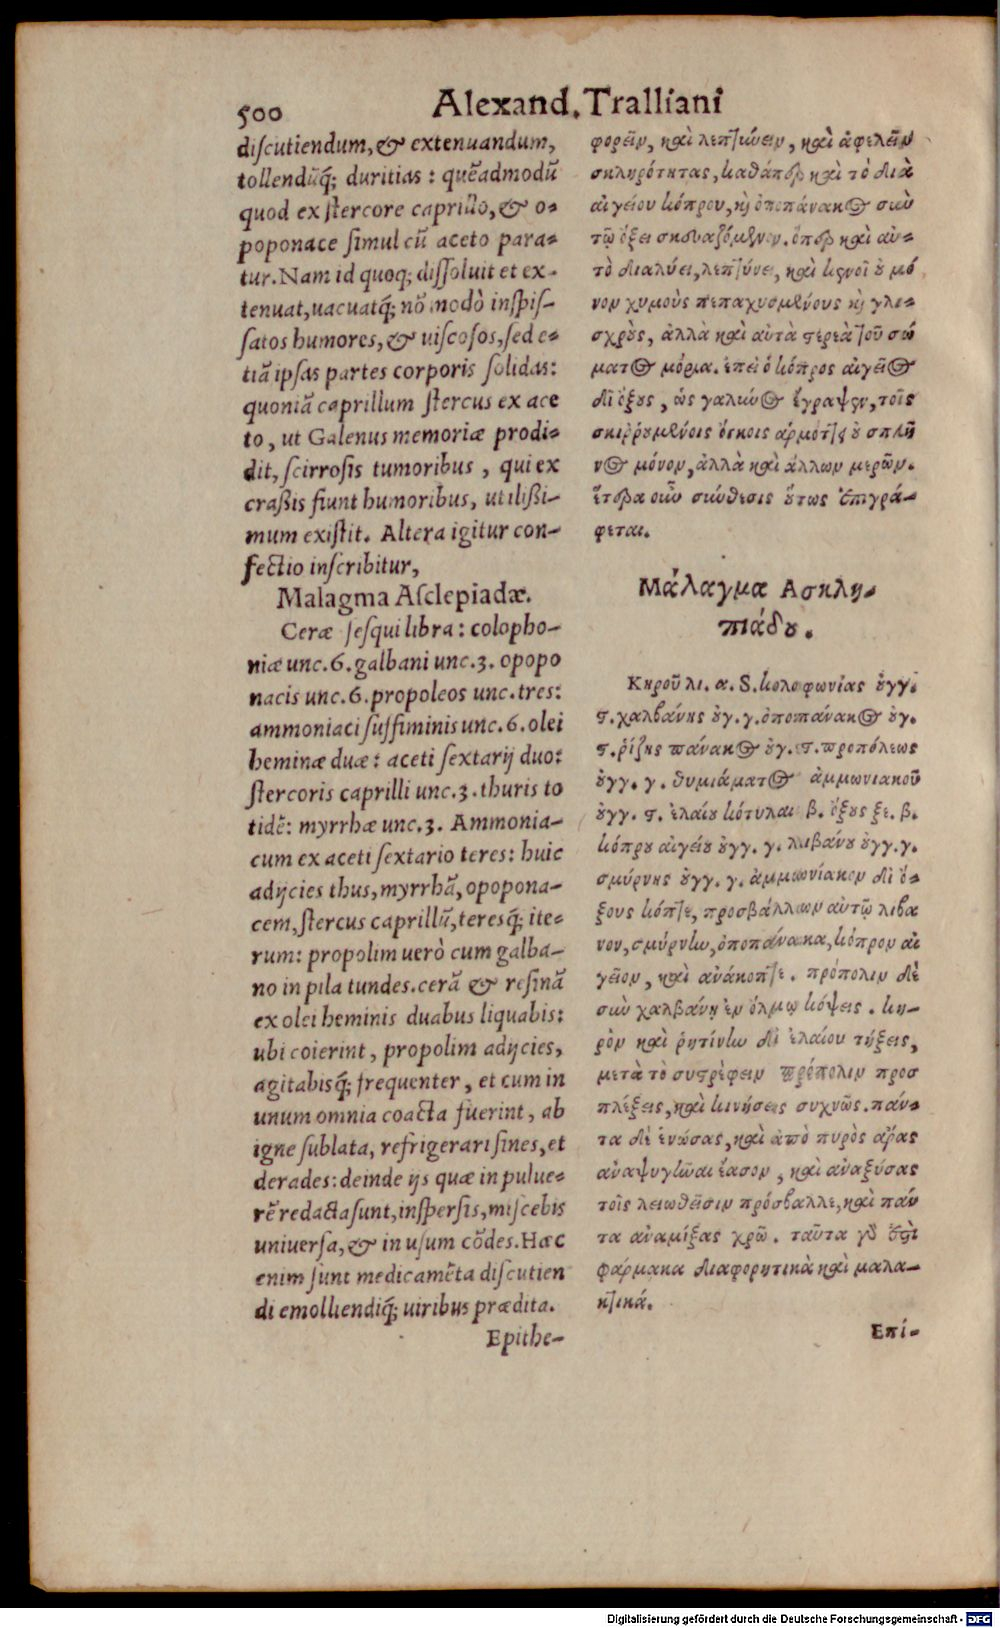 500
Alexand. Tralliani
discutiendum, & extenuandum,
tollendũq́; duritias : quẽadmodũ
quod ex stercore caprillo, & o-
poponace simul cũ aceto para-
tur. Nam id quoq; dissoluit et ex-
tenuat, uacuatq́; nõ modò inspis-
satos humores, & uiscosos, sed e-
tiã ipsas partes corporis solidas:
quoniã caprillum stercus ex ace
to, ut Galenus memoriæ prodi-
dit, scirrosis tumoribus , qui ex
craßis fiunt humoribus, utilißi-
mum existit. Altera igitur con-
fectio inscribitur,
Malagma Asclepiadæ.
Ceræ sesquilibra : colopho-
niæ unc. 6. galbani unc. 3. opopo
nacis unc. 6. propoleos unc. tres:
ammoniaci suffiminis unc. 6. olei
heminæ duæ : aceti sextarij duo:
stercoris caprilli unc. 3. thuris to
tidẽ: myrrhæ unc. 3. Ammonia-
cum ex aceti sextario teres: huic
adijcies thus, myrrhã, opopona-
cem, stercus caprillũ, teresq́; ite-
rum: propolim uerò cum galba-
no in pila tundes. cerã & resinã
ex olei heminis duabus liquabis:
ubi coierint, propolim adijcies,
agitabisq́; frequenter, et cum in
unum omnia coacta fuerint, ab
igne sublata, refrigerari sines, et
derades: deinde ijs quæ in pulue-
rẽ redacta sunt, inspersis, miscebis
uniuersa, & in usum cõdes. Hæc
enim sunt medicamẽta discutien
di emolliendiq́; uiribus prædita.
Epithe-
φορεῖν, καὶ λεπτύνειν, καὶ ἀφελεῖν
σκληρότητας, καθάπερ καὶ τὸ διὰ
αἰγείου κόπρου, καὶ ὀποπάνακος σὺν
τῷ ὄξει σκευαζόμενον. ὅπερ καὶ αὐ-
τὸ διαλύει, λεπτύνει, καὶ κενοῖ οὐ μό
νον χυμοὺς πεπαχυσμένους καὶ γλι-
σχρὺς, ἀλλὰ καὶ αὐτὰ στερεὰ τοῦ σώ
ματος μόρια. ἐπεὶ ὁ κόπρος αἰγεῖος
δι ὄξους, ὡς γαλιὼος ἔγραψεν, τοῖς
σκιῤῥουμένοις ὄγκοις ἁρμόττει οὐ σπλη
νὸς μόνον, ἀλλὰ καὶ ἄλλων μερῶν.
ἕτερα οὖν σύνθεσις οὕτως ἐπιγρά-
φεται.
Μάλαγμα Ασκλη-
πιάδου.
Κηροῦ λι. α. S. κολοφωνίας οὐγγ.
ϛ. χαλβάνης οὐγ. γ. ὀποπάνακος οὐγ.
ϛ. ῥίζης πάνακος οὐγ. ϛ. προπόλεως
οὐγγ. γ. θυμιάματος ἀμμωνιακοῦ
οὐγγ. ϛ. ἐλαίου κότυλαι β. ὄξους ξε. β.
κόπρου αἰγείου οὐγγ. γ. λιβάνου οὐγγ. γ.
σμύρνης οὐγγ. γ. ἀμμωνίακον δι ὄ-
ξους κόπτε, προσβάλλων αὐτῷ λιβα
νον, σμύρνην, ὀποπάνακα, κόπρον αἰ
γεῖον, καὶ ἀνάκοπτε. πρόπολιν δὲ
σὺν χαλβάνῃ ἐν ὅλμῳ κόψεις. κη-
ρὸν καὶ ῥητίνην δι ἐλαίου τήξεις,
μετὰ τὸ συστρέφειν πρόπολιν προσ
πλέξεις, καὶ κινήσεις συχνῶς. πάν-
τα δὲ ἑνώσας, καὶ ἀπὸ πυρὸς ἄρας
ἀναψυγῆναι ἔασον, καὶ ἀναξύσας
τοῖς λειωθεῖσιν πρόσβαλλε, καὶ πάν
τα ἀναμίξας χρῶ. ταῦτα γὰρ ἐστὶ
φάρμακα διαφορητικὰ καὶ μαλα-
κτικά.
Επί-
Digitalisierung gefördert durch die Deutsche Forschungsgemeinschaft - DFG